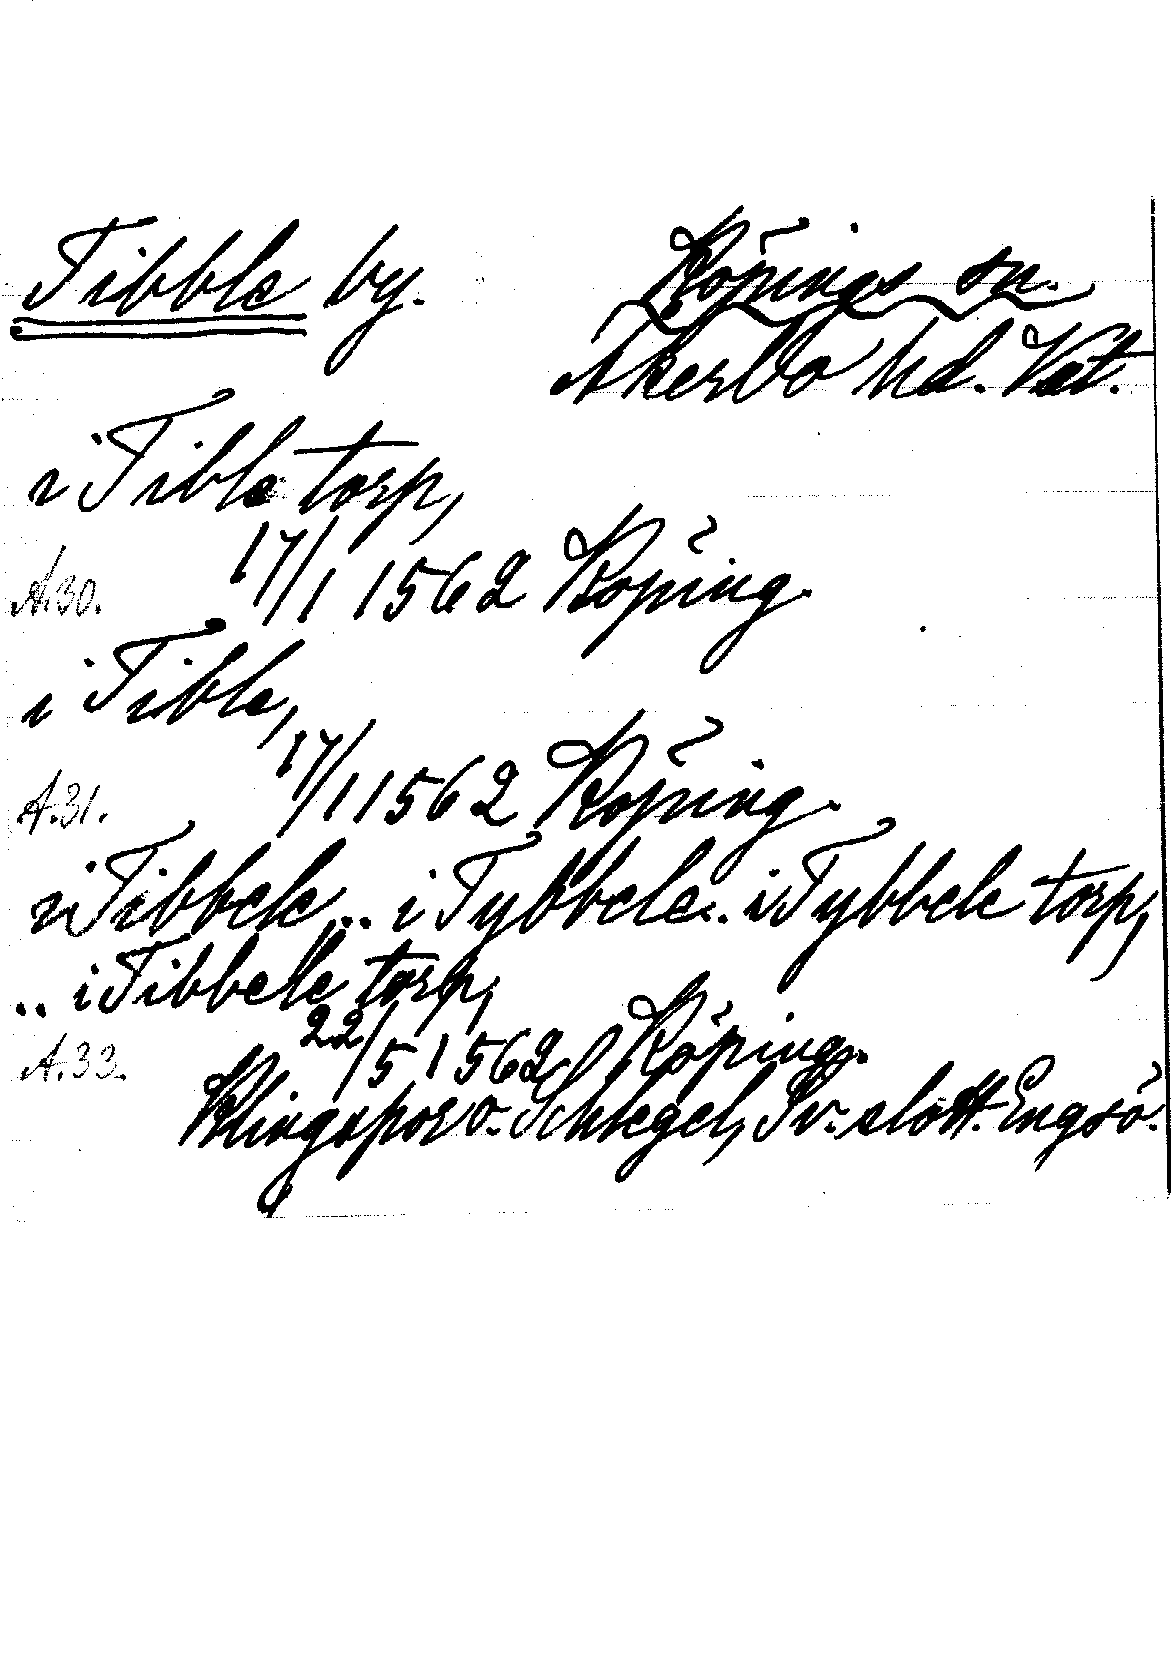 Tibble by. Köpings sn.
Åkerbo hd. Väst.
i Tible torp,
A.30. 17/1 1562 Köping.
i Tible,
A.31. 17/1 1562 Köping.
i Tibbele... i Tybbele.. i Tybbele torp,
.. i Tibbele torp,
A.33. 22/5 1562 Köping.
Klingspor o. Schlegel, Sv. slott. Engsö.